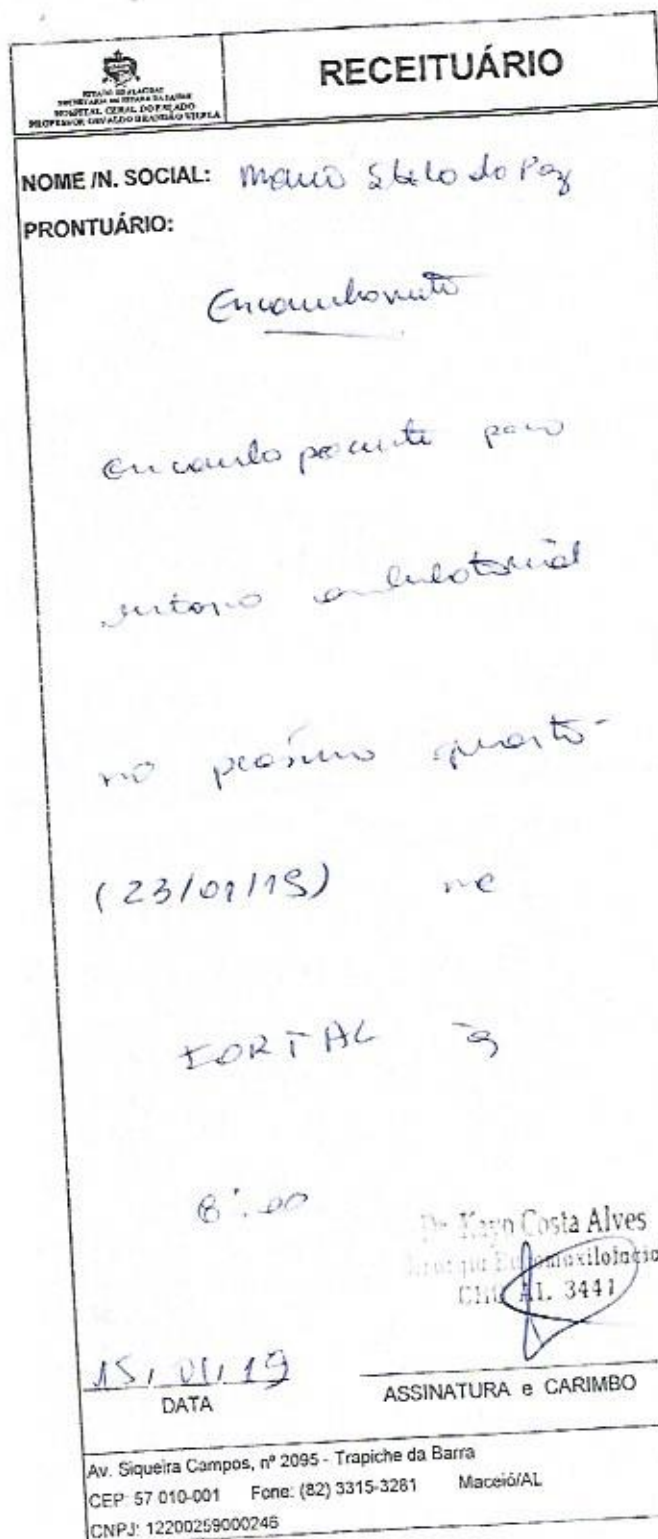 ESTADO DE ALAGOAS
SECRETARIA DE ESTADO DA SAÚDE
HOSPITAL GERAL DO ESTADO
PROFESSOR OSVALDO BRANDÃO VILELA
RECEITUÁRIO
NOME /N. SOCIAL: do Paz
PRONTUÁRIO:
Encaminhamento
Encaminho paciente para
retorno ambulatorial
na próxima quarta-
(23/01/19) no
PORTAL às
8:00
Dr. Kayo Costa Alves
CRO AL 3441
15/01/19
DATA
ASSINATURA e CARIMBO
Av. Siqueira Campos, nº 2095 - Trapiche da Barra
CEP: 57 010-001 Fone: (82) 3315-3281 Maceió/AL
CNPJ: 12200259000246